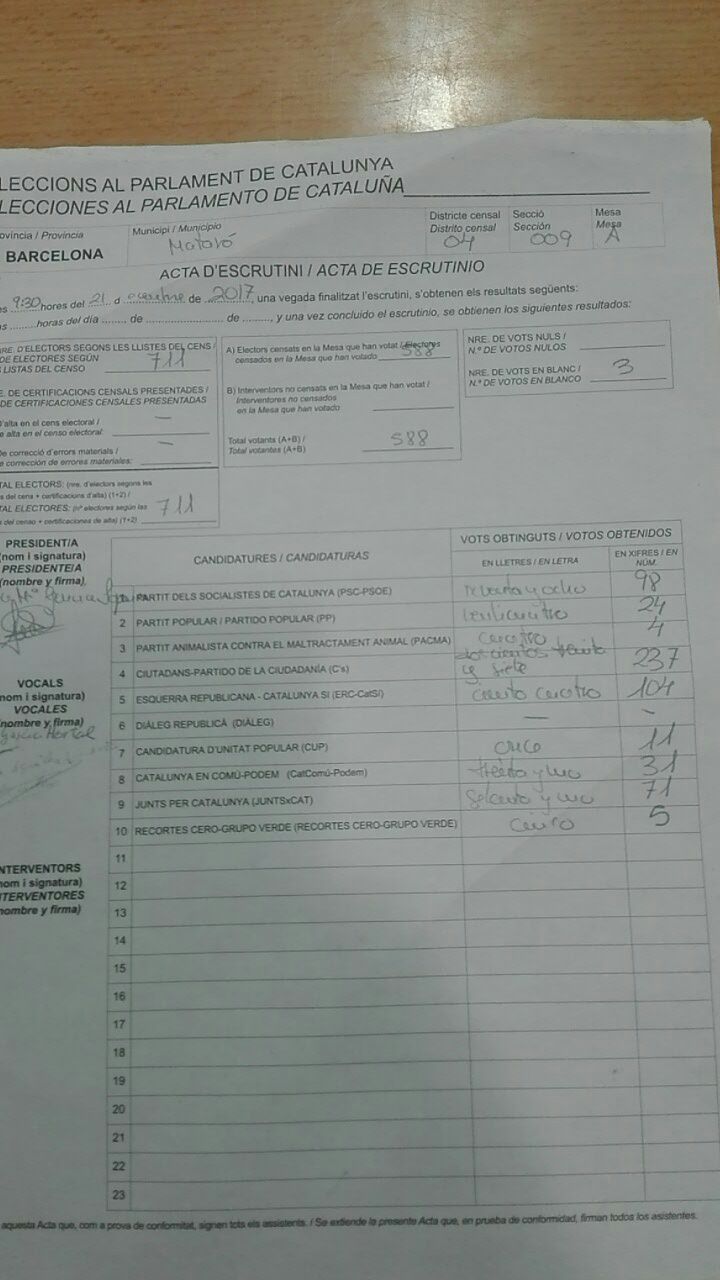 LECCIONS AL PARLAMENT DE CATALUNYA
LECCIONES AL PARLAMENTO DE CATALUÑA
ovíncia / Provincia
BARCELONA
Municipi / Municipio
Mataró
Districte censal
Distrito censal
04
Secció
Sección
009
Mesa
Mesa
A
ACTA D'ESCRUTINI / ACTA DE ESCRUTINIO
es 9:30 hores del 21 d de 2017, una vegada finalitzat l'escrutini, s'obtenen els resultats següents:
as ........horas del día ....... de ...................... de .........., y una vez concluido el escrutinio, se obtienen los siguientes resultados:
RE. D'ELECTORS SEGONS LES LLISTES DEL CENS /
DE ELECTORES SEGÚN
LISTAS DEL CENSO 711
E. DE CERTIFICACIONS CENSALS PRESENTADES /
DE CERTIFICACIONES CENSALES PRESENTADAS
'alta en el cens electoral / —
e alta en el censo electoral:
De correcció d'errors materials / —
e corrección de errores materiales:
TAL ELECTORS: (nre. d'electors segons les
s del cens + certificacions d'alta) (1+2) /
TAL ELECTORES: (nº electores según las
s del censo + certificaciones de alta) (1+2) 711
A) Electors censats en la Mesa que han votat / Electores
censados en la Mesa que han votado 588
B) Interventors no censats en la Mesa que han votat /
Interventores no censados
en la Mesa que han votado
Total votants (A+B) /
Total votantes (A+B) 588
NRE. DE VOTS NULS /
N.º DE VOTOS NULOS
NRE. DE VOTS EN BLANC /
N.º DE VOTOS EN BLANCO 3
PRESIDENT/A
(nom i signatura)
PRESIDENTE/A
(nombre y firma)
VOCALS
nom i signatura)
VOCALES
(nombre y firma)
NTERVENTORS
nom i signatura)
NTERVENTORES
nombre y firma)
CANDIDATURES / CANDIDATURAS
VOTS OBTINGUTS / VOTOS OBTENIDOS
EN LLETRES / EN LETRA
EN XIFRES / EN NÚM.
1 PARTIT DELS SOCIALISTES DE CATALUNYA (PSC-PSOE) noventa y ocho 98
2 PARTIT POPULAR / PARTIDO POPULAR (PP) veinticuatro 24
3 PARTIT ANIMALISTA CONTRA EL MALTRACTAMENT ANIMAL (PACMA) cuatro 4
4 CIUTADANS-PARTIDO DE LA CIUDADANÍA (C's) doscientos treinta y siete 237
5 ESQUERRA REPUBLICANA - CATALUNYA SÍ (ERC-CatSí) ciento cuatro 104
6 DIÀLEG REPUBLICÀ (DIÀLEG) — –
7 CANDIDATURA D'UNITAT POPULAR (CUP) once 11
8 CATALUNYA EN COMÚ-PODEM (CatComú-Podem) treinta y uno 31
9 JUNTS PER CATALUNYA (JUNTSxCAT) setenta y uno 71
10 RECORTES CERO-GRUPO VERDE (RECORTES CERO-GRUPO VERDE) cinco 5
11
12
13
14
15
16
17
18
19
20
21
22
23
aquesta Acta que, com a prova de conformitat, signen tots els assistents. / Se extiende la presente Acta que, en prueba de conformidad, firman todos los asistentes.